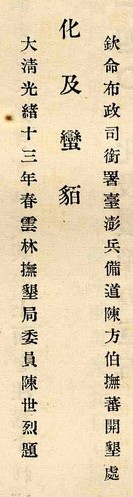 欽命布政司銜署臺澎兵備道陳方伯撫蕃開墾處
化及蠻貊
大清光緒十三年春雲林撫墾局委員陳世烈題